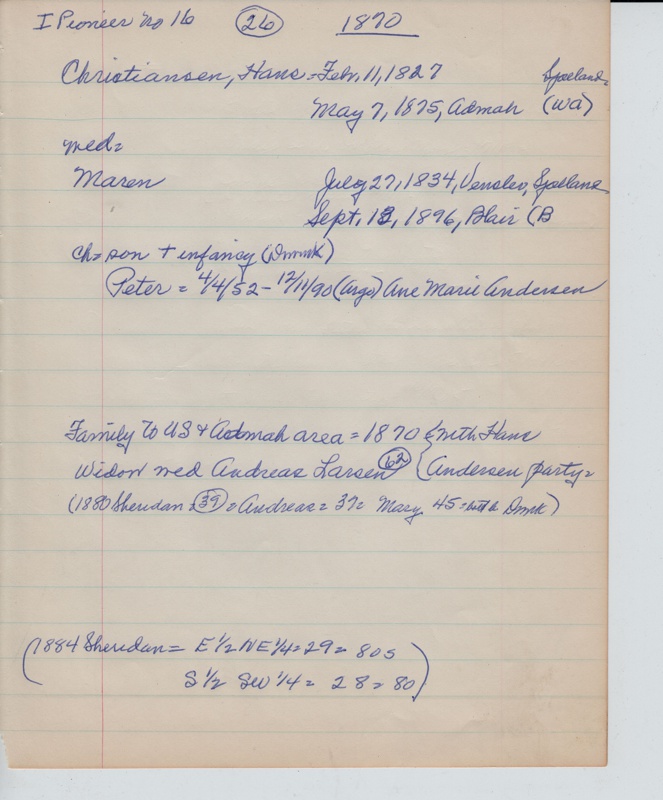 I Pioneer no 16 (26) 1870
Christiansen, Hans = Feb. 11, 1827 Sjoeland=
May 7, 1875, Admah (WA)
wed=
Maren July 27, 1834, Venslev, Sjoeland
Sept. 13, 1896, Blair (B
ch= son + infancy (Dnmk)
Peter = 4/4/52 - 12/11/90 (Argo) Ane Marie Andersen
Family to US & Admah area = 1870 { with Hans
Widow wed Andreas Larsen (62) { Andersen party=
(1880 Sheridan = (39) = Andreas = 37= Mary 45 = both b Dnmk)
(1884 Sheridan = E 1/2 NE 1/4 = 29 = 80s
S 1/2 SW 1/4 = 28 = 80)